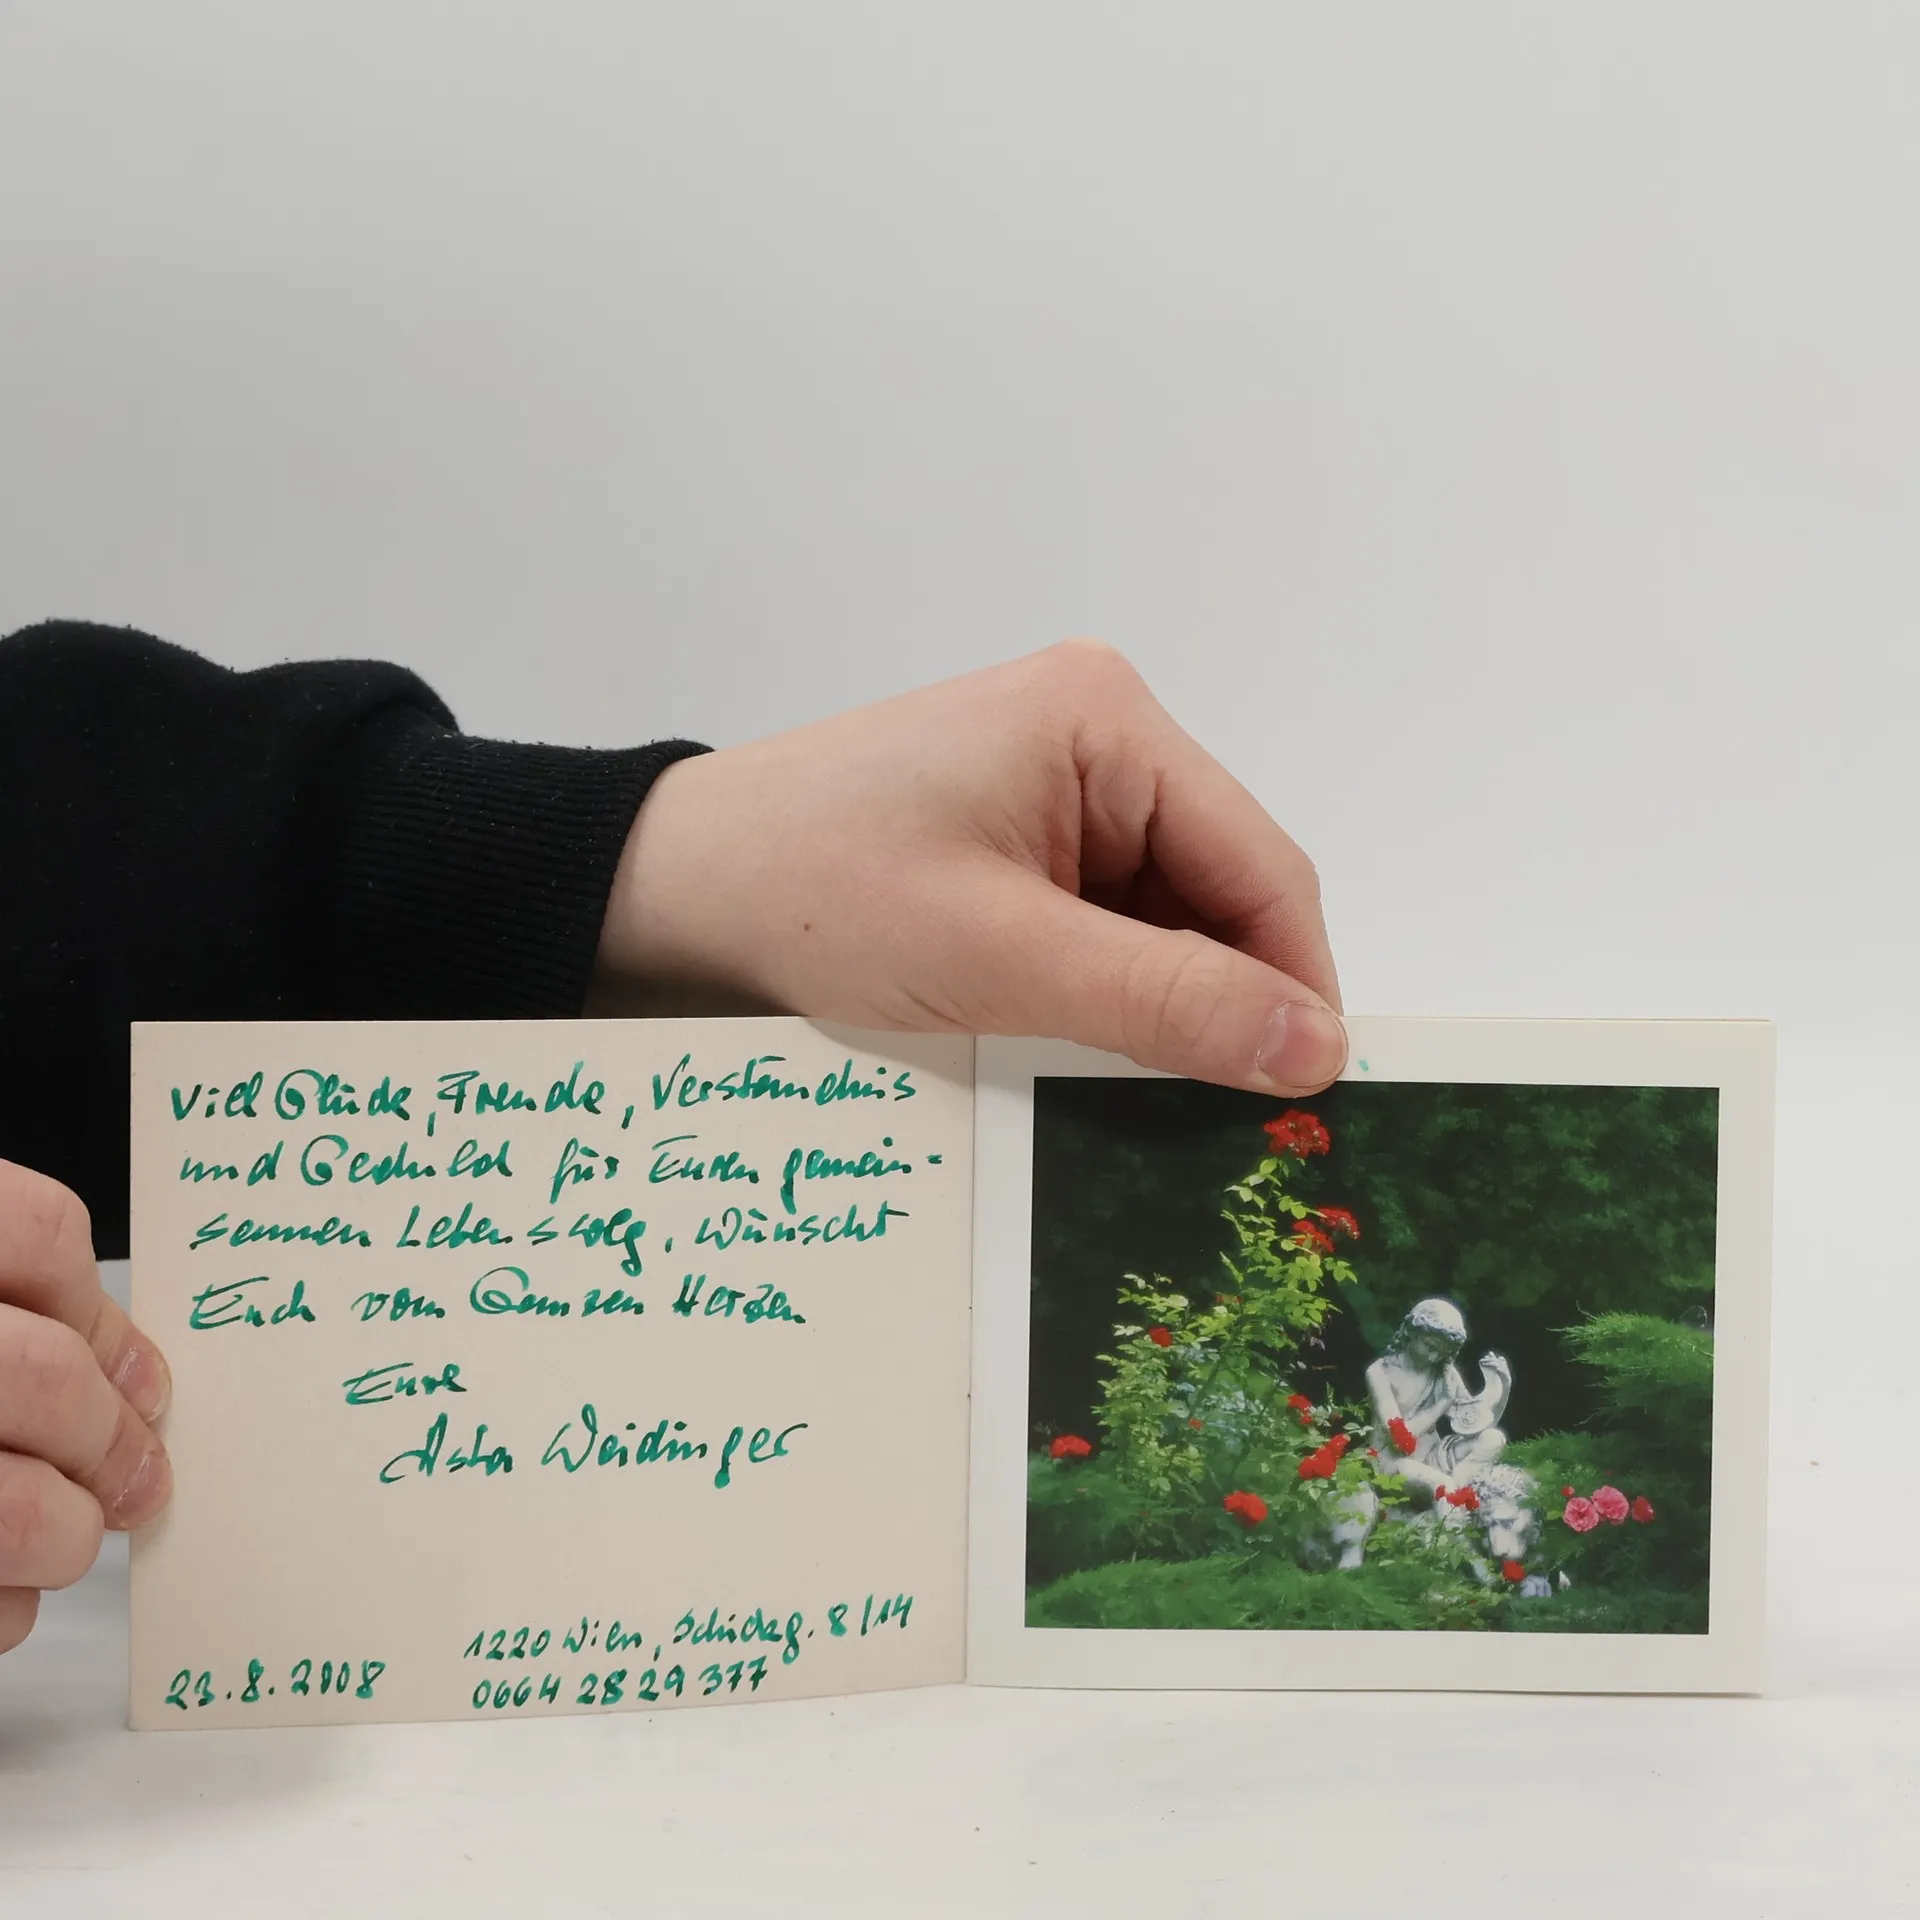 Viel Glück, Freude, Verständnis
und Geduld für Euren gemein-
samen Lebensweg, wünscht
Euch vom Ganzen Herzen
Eure
Asta Weidinger
1220 Wien, Schickg. 8/14
23.8.2008
0664 28 29 377